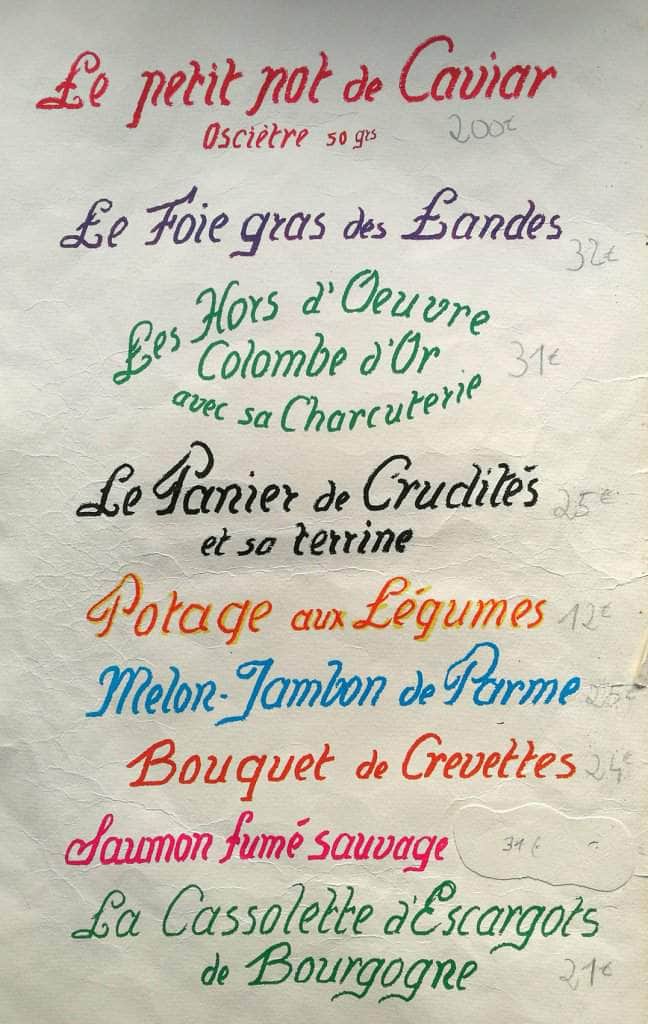 Le petit pot de Caviar
Osciètre 50 grs 200€
Le Foie gras des Landes
32€
Les Hors d'Oeuvre
Colombe d'Or 31€
avec sa Charcuterie
Le Panier de Crudités 25€
et sa terrine
Potage aux Légumes 12€
Melon-Jambon de Parme 25€
Bouquet de Crevettes 24€
Saumon fumé sauvage 31€
La Cassolette d'Escargots
de Bourgogne 21€